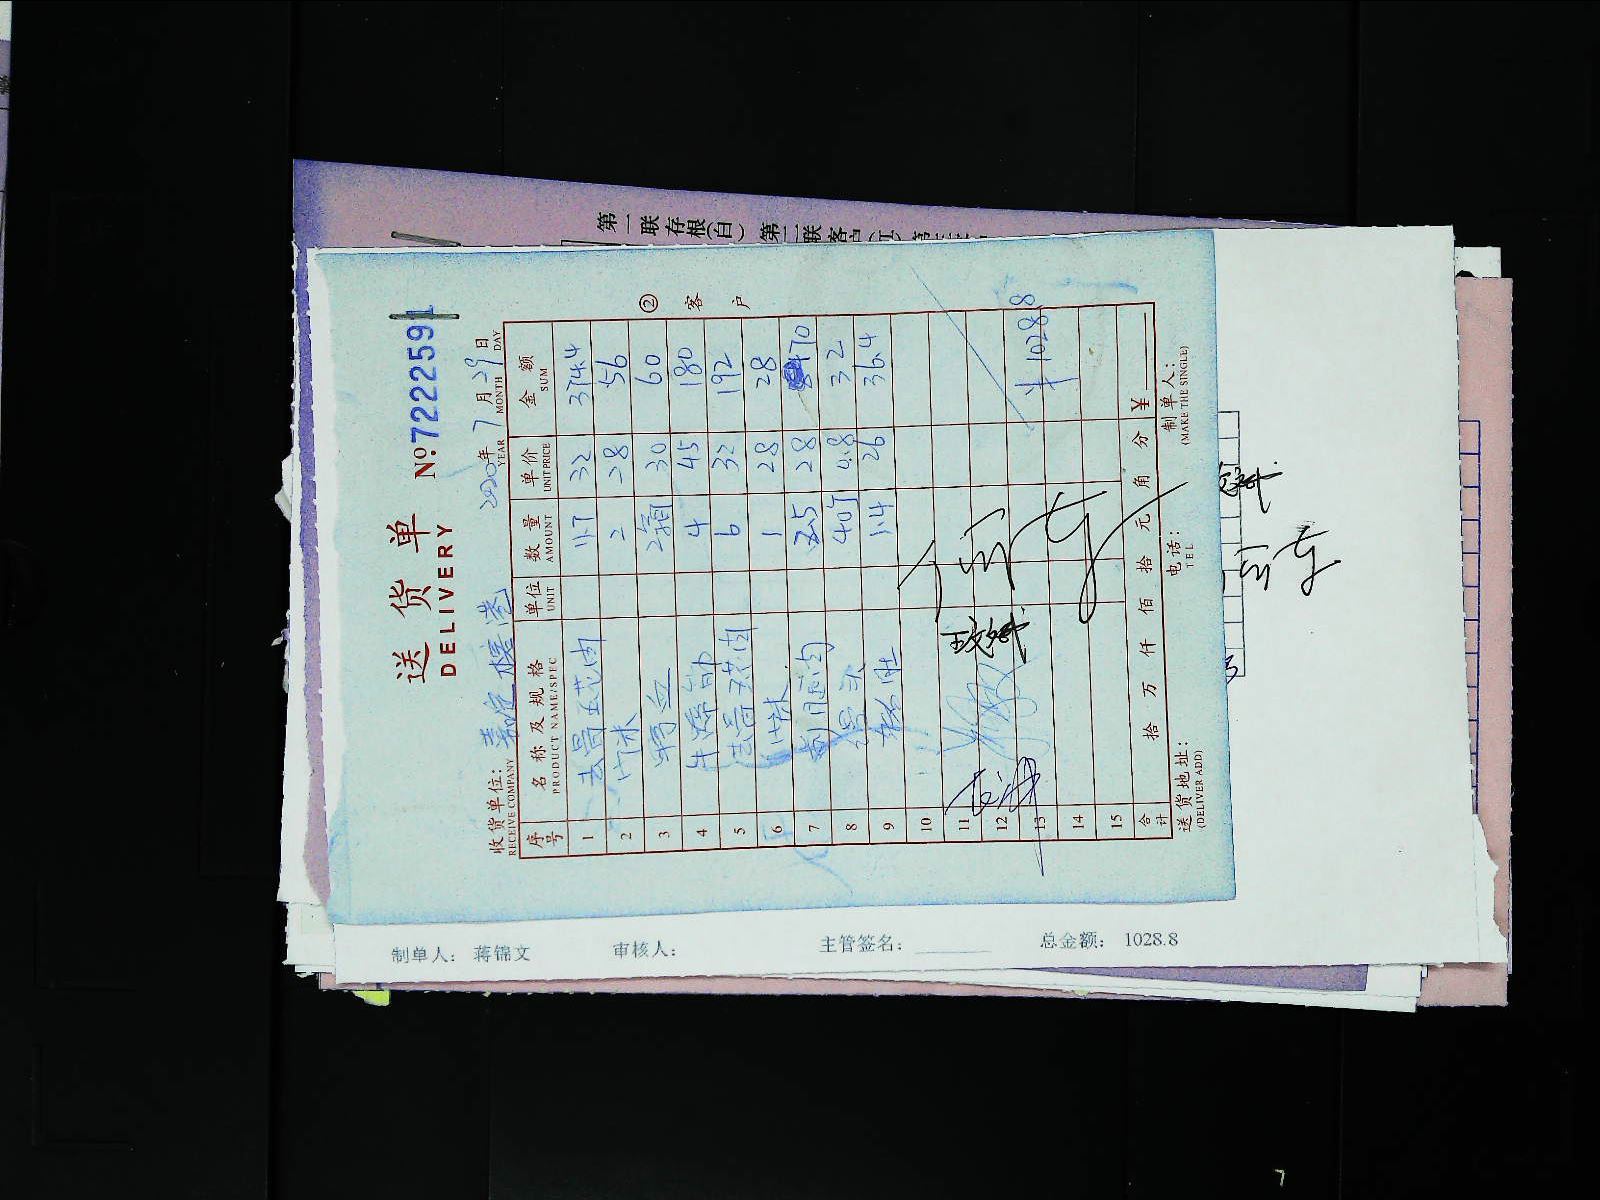 第一联存根(白) 第二联客户(红)
送货单
DELIVERY
№7222591
收货单位:
RECEIVE COMPANY
2020年 7月29日
YEAR MONTH DAY
序号 名称及规格 单位 数量 单价 金额
PRODUCT NAME/SPEC UNIT AMOUNT UNIT PRICE SUM
1 去骨五花肉 11.7 32 374.4
2 小沫 2 28 56
3 鸭血 2箱 30 60
4 4 45 180
5 去骨五花肉 6 32 192
6 小沫 1 28 28
7 2.5 28 70
8 40个 0.8 32
9 1.4 26 36.4
10
11
12
13 ¥1028.8
14
15
合计 拾 万 仟 佰 拾 元 角 分 ¥
送货地址:
(DELIVER ADD)
电话:
TEL
制单人:
(MAKE THE SINGLE)
② 客户
制单人: 蒋锦文 审核人: 主管签名: 总金额: 1028.8